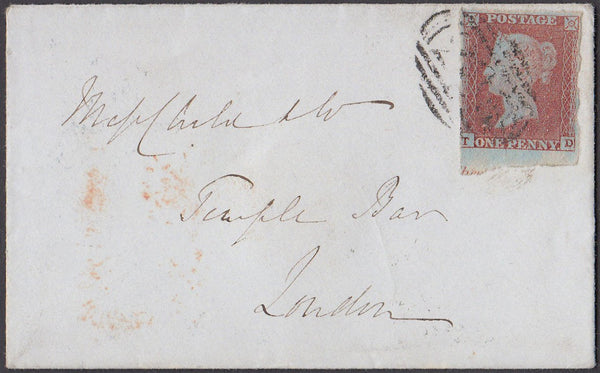 POSTAGE
T ONE PENNY D
Messrs Child & Co
Temple Bar
London